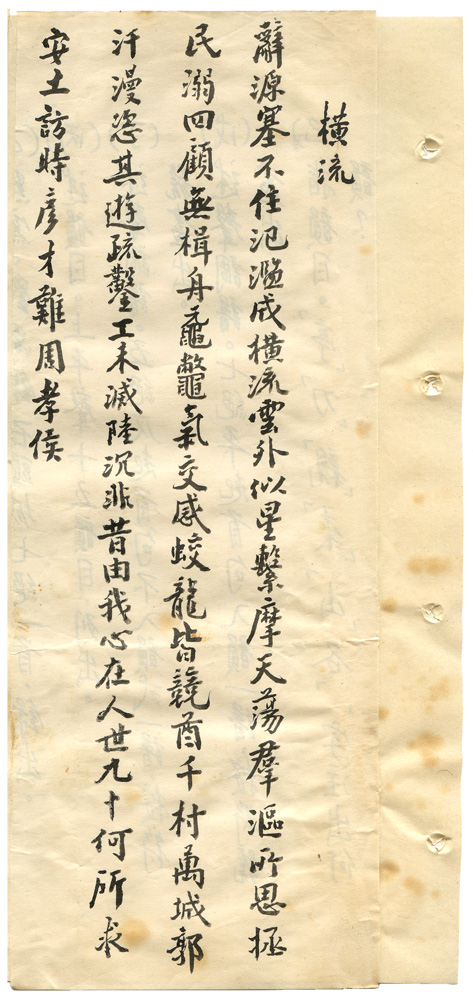 橫流
辭源塞不住氾濫成橫流雲外似星繫摩天蕩群漚所思拯
民溺四顧無楫舟黿鼈氣交感蛟龍皆競酋千村萬城郭
汗漫恣其遊疏鑿工未減陸沉非昔由我心在人世九十何所求
安土訪時彥才難周孝侯